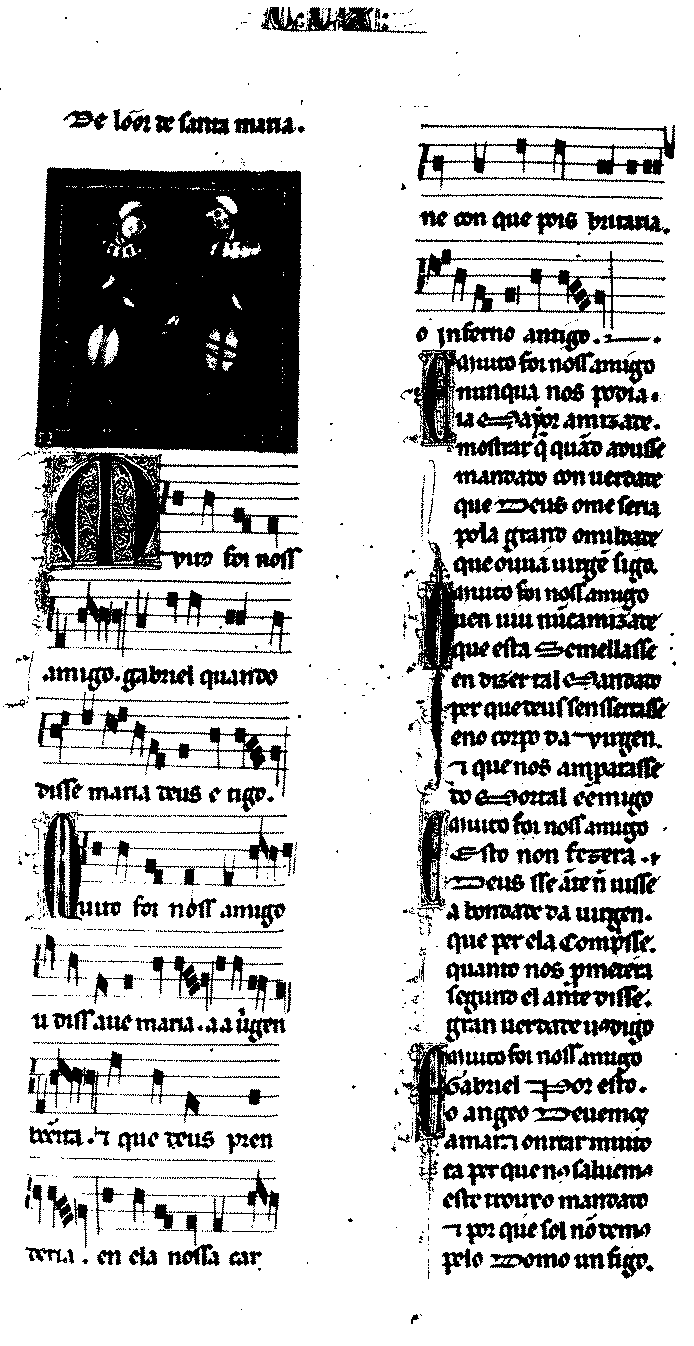 De loor de santa maria.
Muito foi noss
amigo. gabriel quando
disse maria deus e tigo.
Muito foi noss amigo
u diss aue maria. a a uĩgen
bẽeita. ⁊ que deus pren
deria. en ela nossa car
ne con que pois britaria.
o inferno antigo.
Muito foi noss amigo
nunqua nos podia.
ia Mayor amizade.
mostrar q̃ quãd adusse
mandado con uerdade
que Deus ome seria
pola grand omildade
que ouu a uirgẽ sigo.
Muito foi noss amigo
uen uiu nũca mizade
que esta Semellasse
en dizer tal Mandado
per que deus senserrasse
eno corpo da virgen.
⁊ que nos amparasse
do Mortal ẽemigo
Muito foi noss amigo
Esto non fezera
Deus sse ãte nõ uisse
a bondade da uirgen.
que per ela Comprisse.
quanto nos pmetera
segund el ante disse.
gran uerdade uos digo
Muito foi noss amigo
Gabriel Por esto.
o angeo Deuemos
amar ⁊ onrrar muito
ca per que nos saluemos
este trouxo mandado
⁊ por que sol nõ temos
pelo Domo un figo.